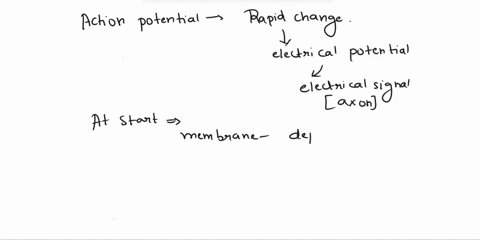 Action potential → Rapid change.
↓
electrical potential
↓
electrical signal
[axon]
At start ⇒
membrane - dep